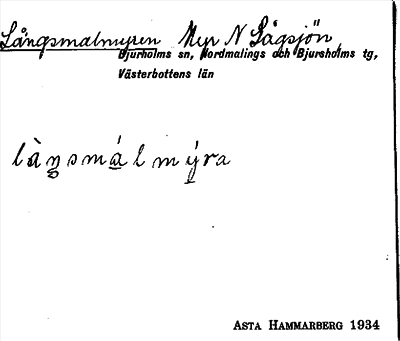 Långsmalmyren Myr N Lågsjön,
Bjurholms sn, Nordmalings och Bjursholms tg,
Västerbottens län
làŋsmálmýra
ASTA HAMMARBERG 1934